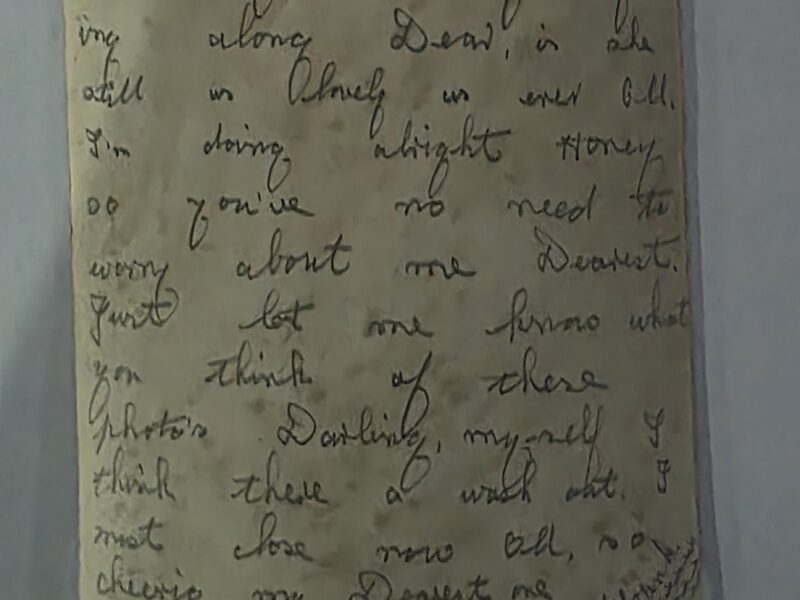 ing along Dear, is she
still as lovely as ever Oll.
I'm doing alright Honey
so you've no need to
worry about me Dearest.
Just let me know what
you think of these
photo's Darling, myself I
think there a wash out. I
must close now Oll, so
cheerio my Dearest one